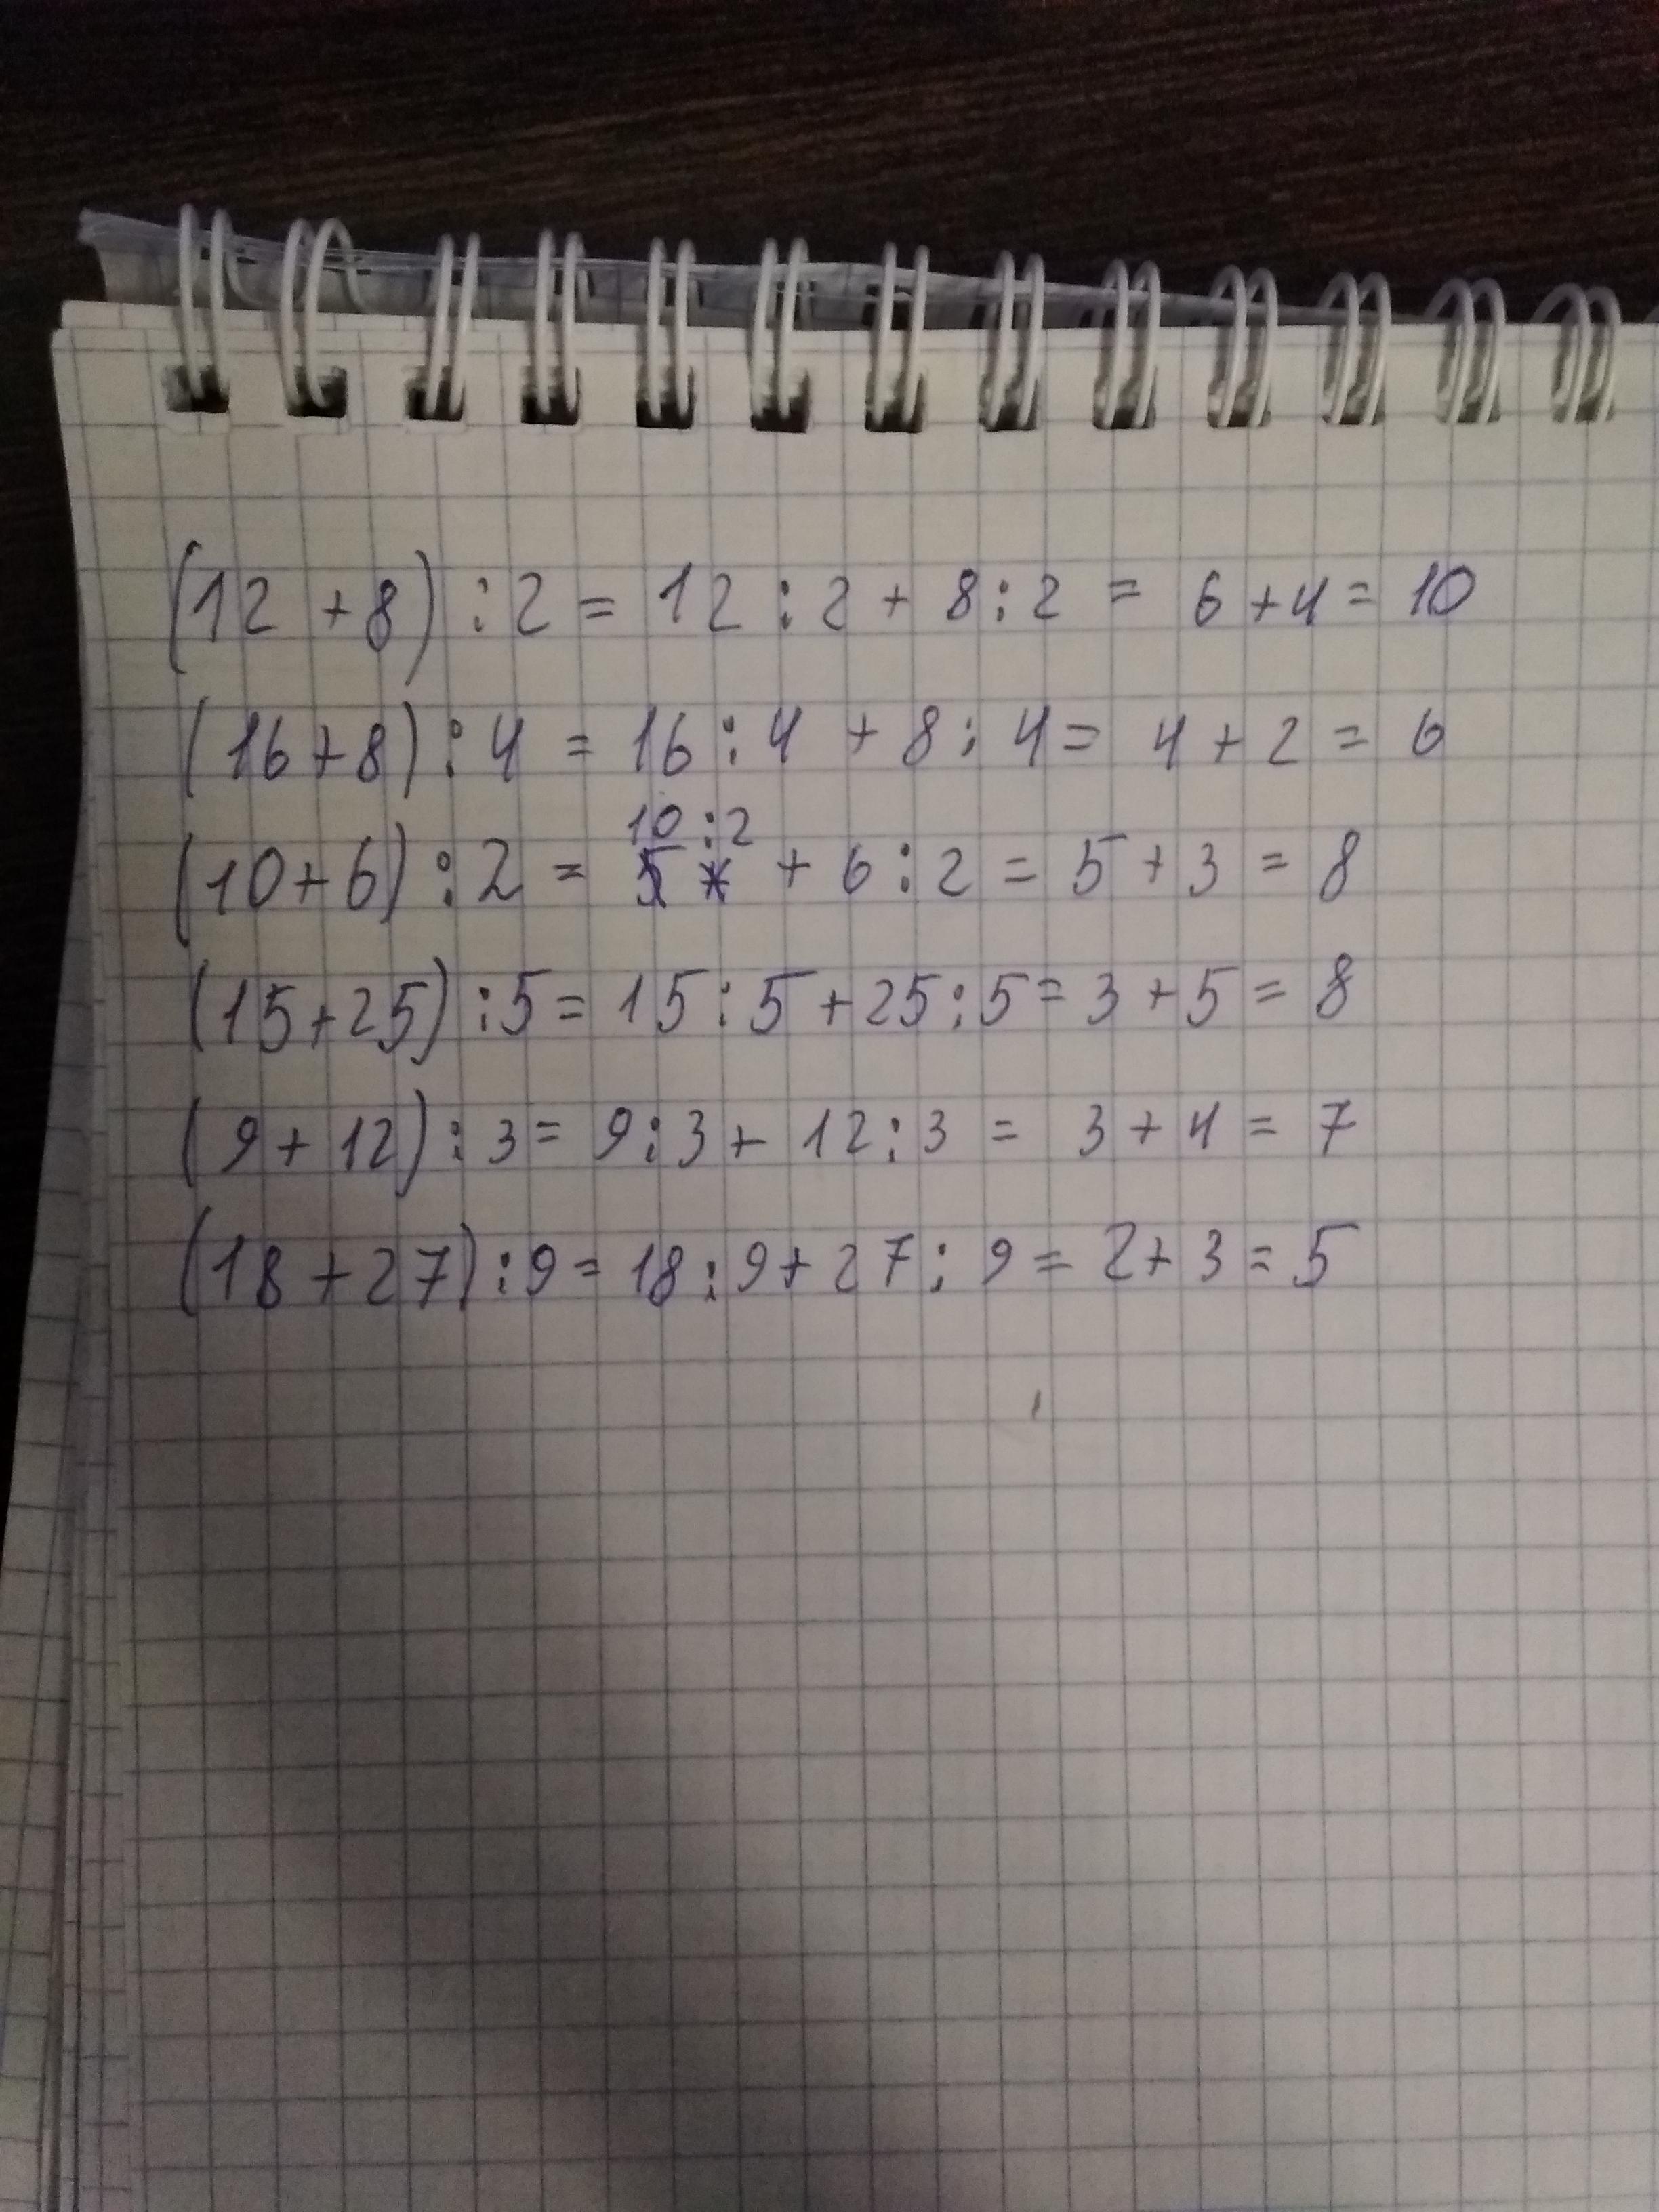 (12 + 8) : 2 = 12 : 2 + 8 : 2 = 6 + 4 = 10
(16 + 8) : 4 = 16 : 4 + 8 : 4 = 4 + 2 = 6
10 : 2
(10 + 6) : 2 = 5 + 6 : 2 = 5 + 3 = 8
(15 + 25) : 5 = 15 : 5 + 25 : 5 = 3 + 5 = 8
(9 + 12) : 3 = 9 : 3 + 12 : 3 = 3 + 4 = 7
(18 + 27) : 9 = 18 : 9 + 27 : 9 = 2 + 3 = 5